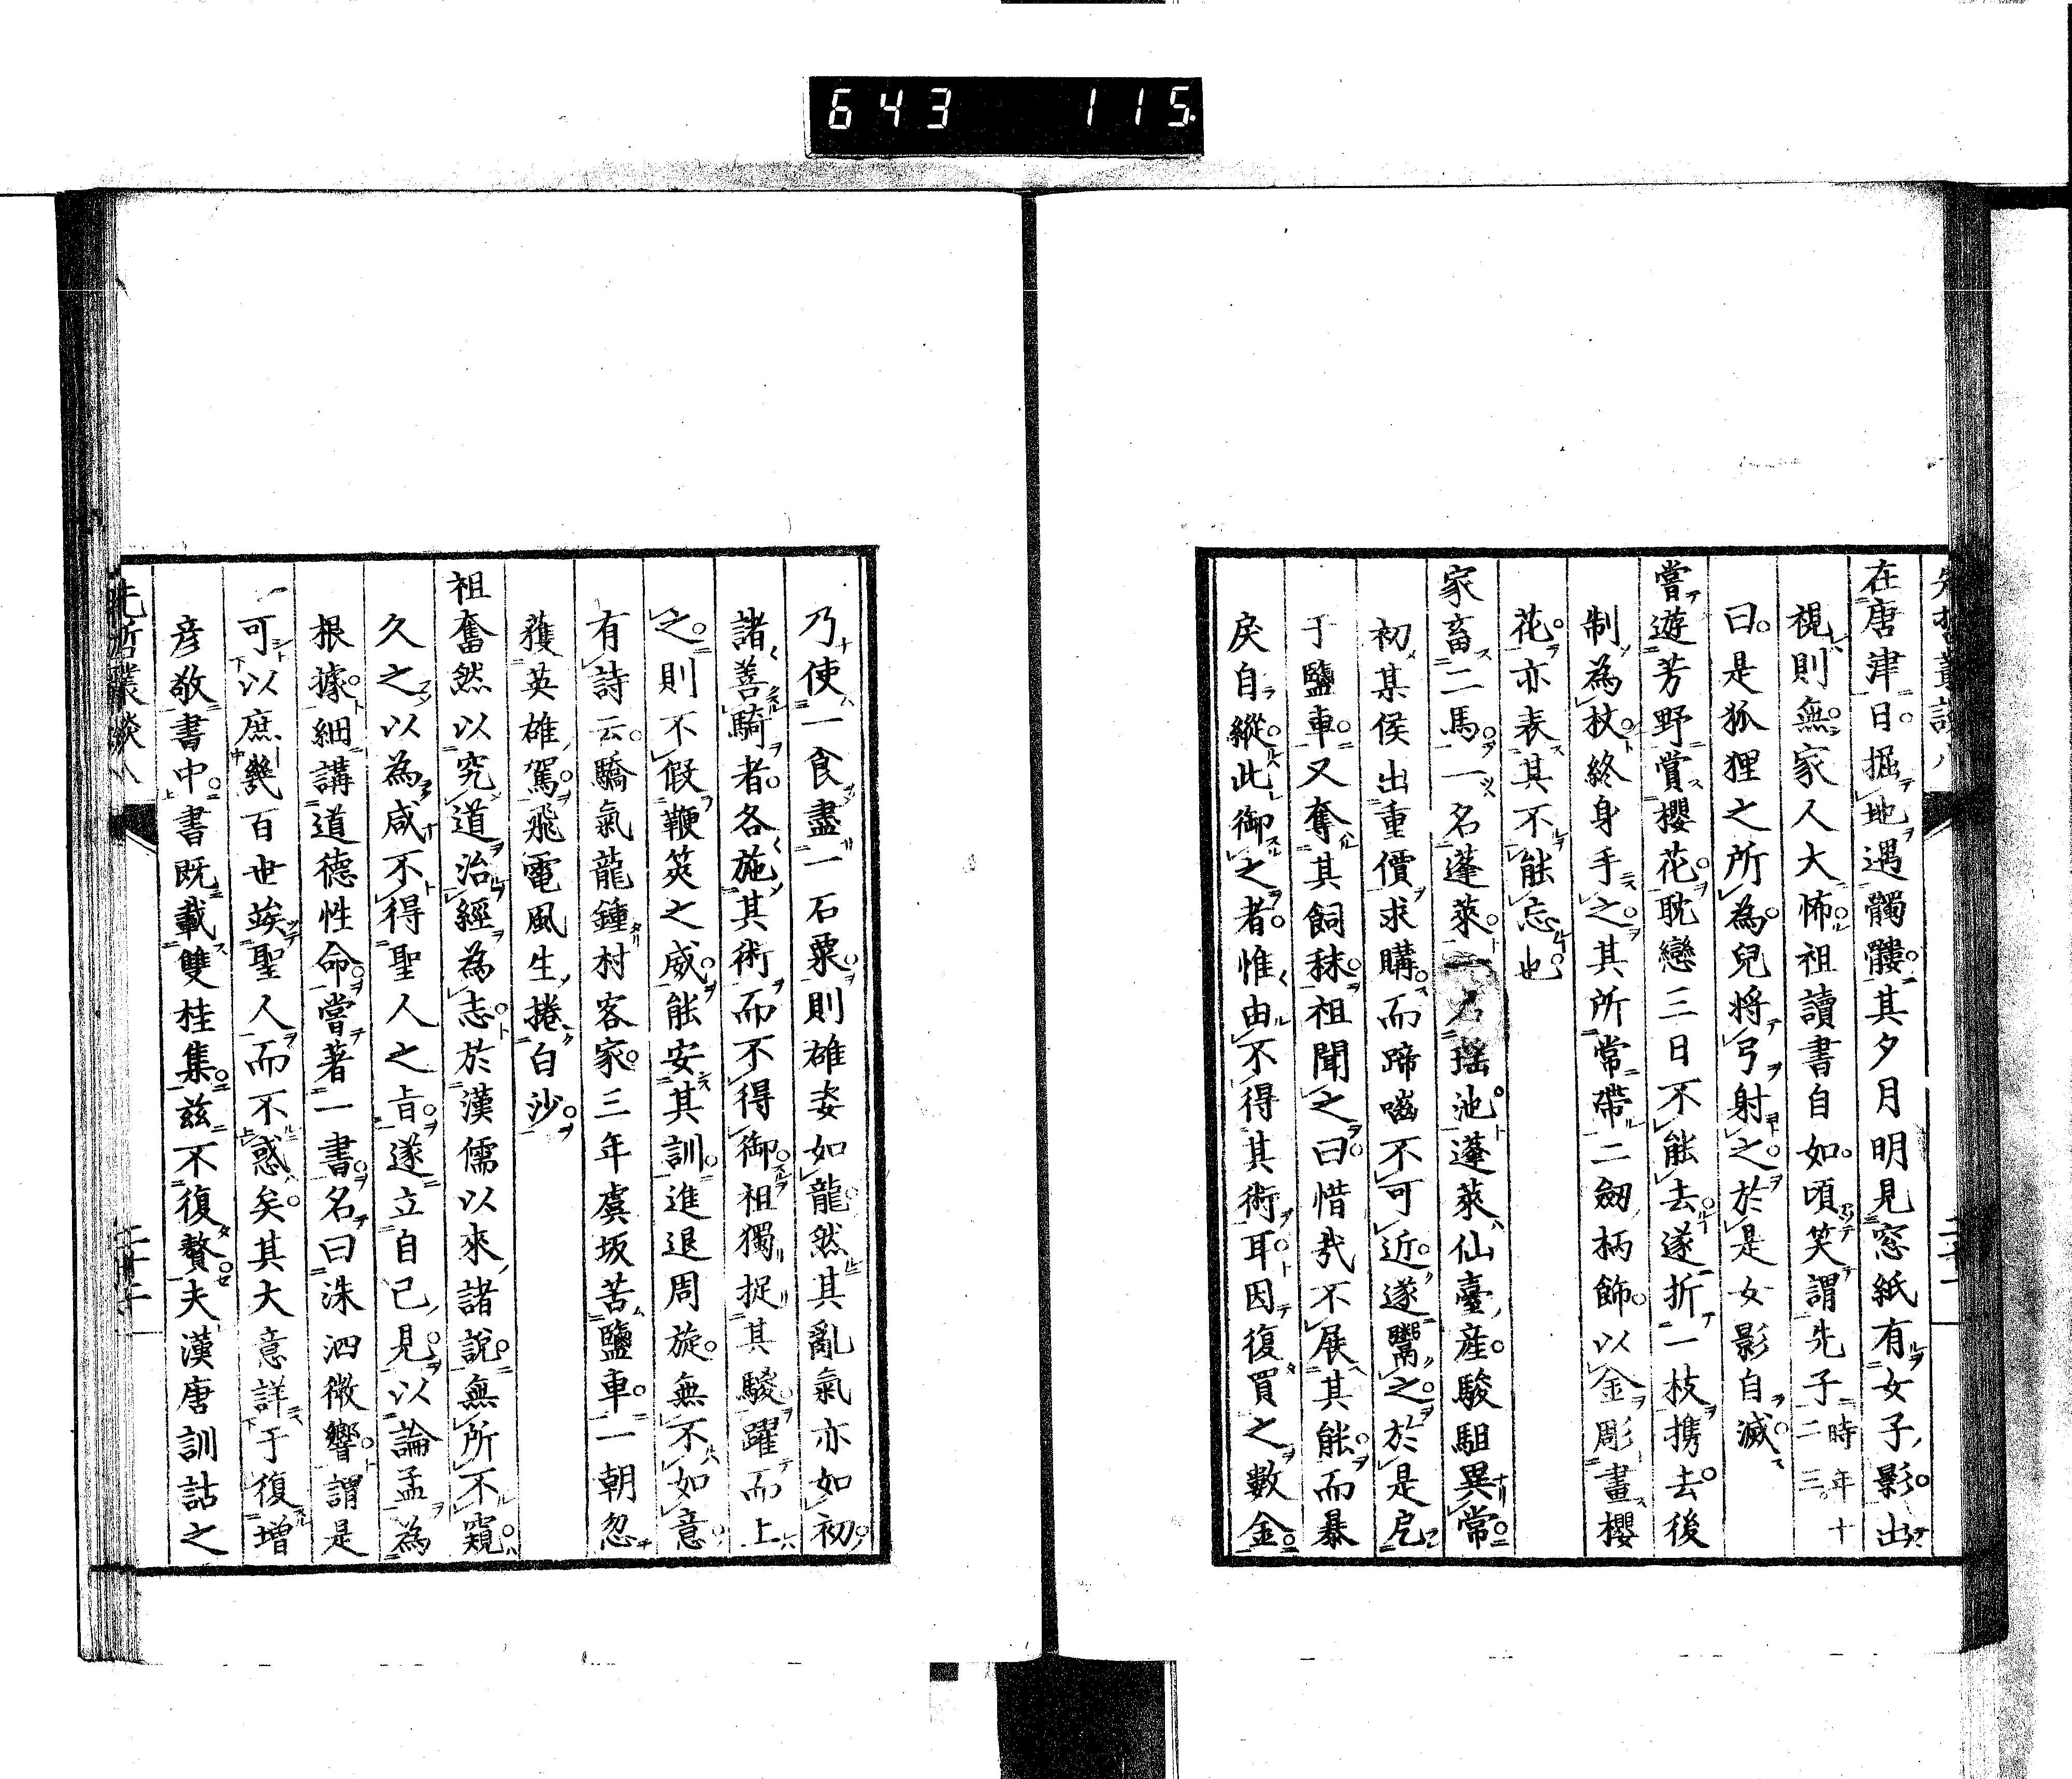 643 115
在唐津日掘地遇髑髏其夕月明見窓紙有女子影出
視則無家人大怖祖讀書自如頃笑謂先子時年十二三
曰是狐狸之所為兒將弓射之於是女影自滅
嘗遊芳野賞櫻花耽戀三日不能去遂折一枝携去後
制為杖終身手之其所常帶二劔柄飾以金彫畫櫻
花亦表其不能忘也
家畜二馬一名蓬萊一名瑶池蓬萊仙臺産駿駔異常
初某侯出重價求購而蹄嚙不可近遂鬻之於是
于鹽車又奪其飼秣祖聞之曰惜哉不展其能而暴
戾自縱此御之者惟由不得其術耳因復買之數金
乃使一食盡一石粟則雄姿如龍然其亂氣亦如初
諸善騎者各施其術而不得御祖獨捉其騣躍而上
之則不假鞭筴之威能安其訓進退周旋無不如意
有詩云驕氣龍鍾村客家三年虞坂苦鹽車一朝忽
獲英雄駕飛電風生捲白沙
祖奮然以究道治經為志於漢儒以來諸説無所不窺
久之以為咸不得聖人之旨遂立自己見以論孟為
根據細講道德性命嘗著一書名曰洙泗微響謂是
可以庶幾百世竢聖人而不惑矣其大意詳于復增
彦敬書中書既載雙桂集茲不復贅夫漢唐訓詁之
先哲叢談八